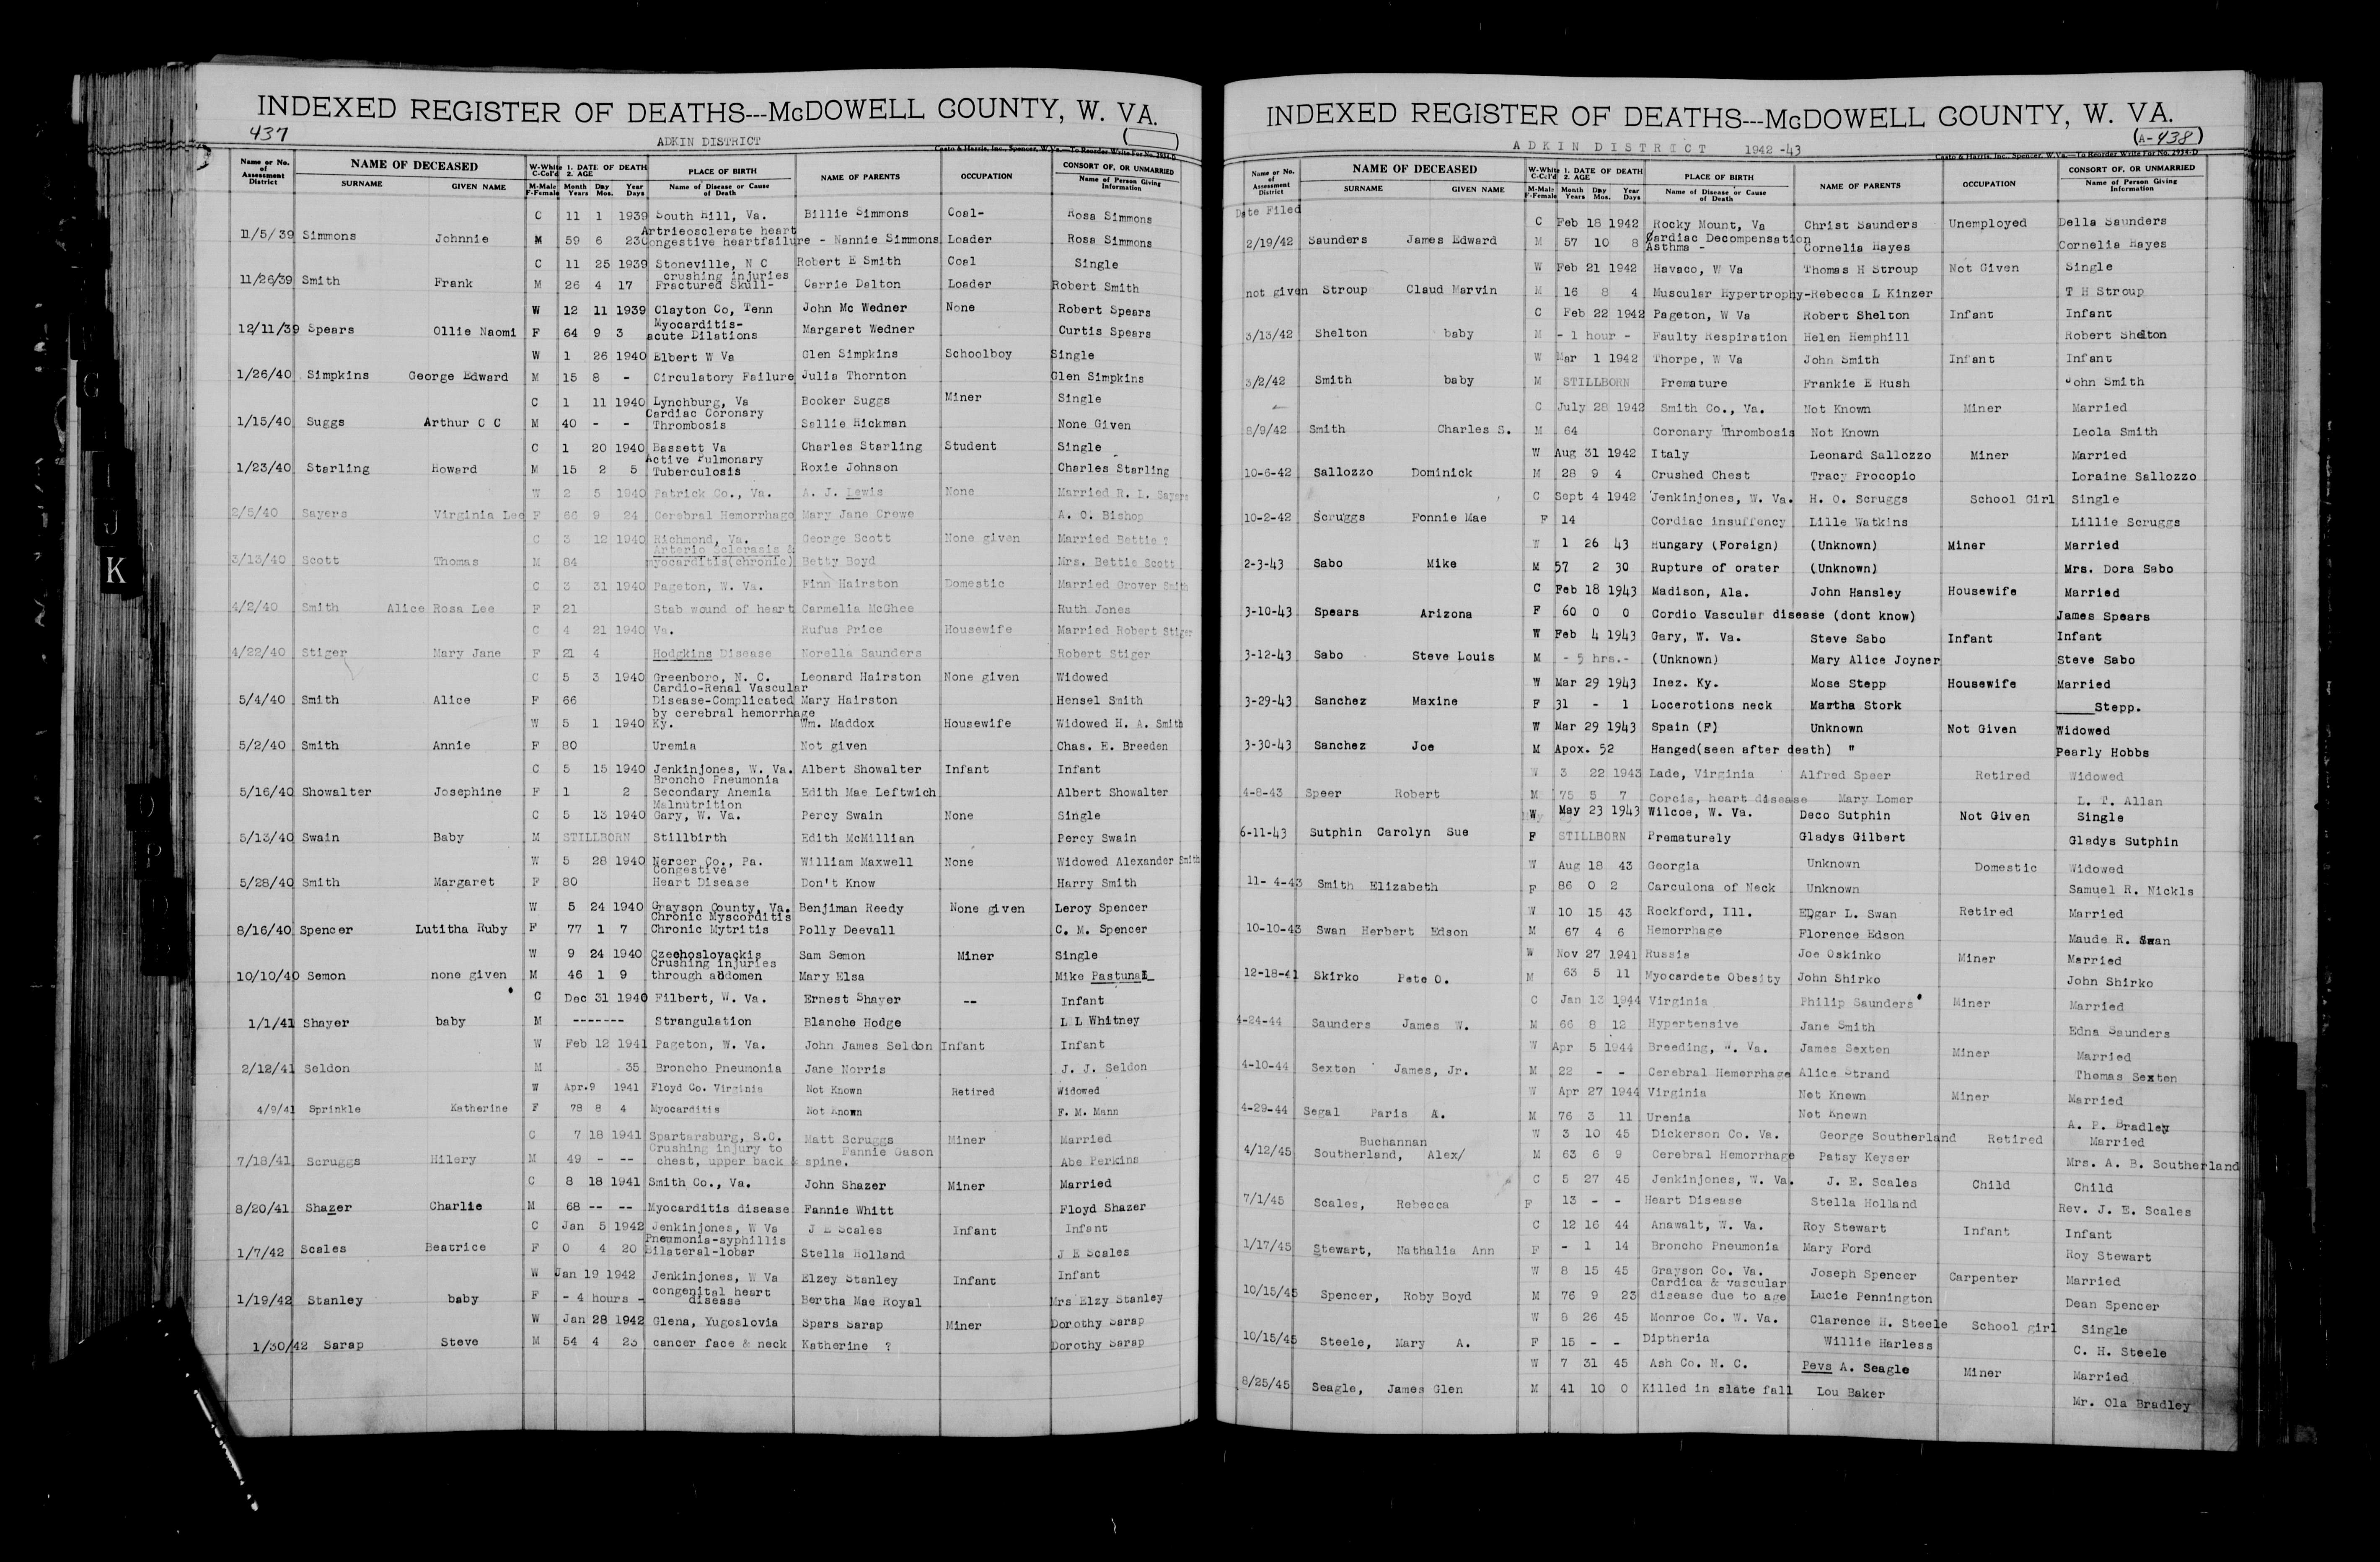 INDEXED REGISTER OF DEATHS---McDOWELL COUNTY, W. VA.
437
ADKIN DISTRICT
Casto & Harris, Inc., Spencer, W. Va.—To Reorder Write For No. 1934-D
Name or No. of Assessment District NAME OF DECEASED SURNAME GIVEN NAME W-White C-Col'd M-Male F-Female 1. DATE OF DEATH 2. AGE Month Day Year Years Mos. Days PLACE OF BIRTH Name of Disease or Cause of Death NAME OF PARENTS OCCUPATION CONSORT OF, OR UNMARRIED Name of Person Giving Information
C 11 1 1939 South Hill, Va. Billie Simmons Coal- Rosa Simmons
Artrieosclerate heart
11/5/39 Simmons Johnnie M 59 6 23 Congestive heartfailure - Nannie Simmons Loader Rosa Simmons
C 11 25 1939 Stoneville, N C Robert E Smith Coal Single
crushing injuries
11/26/39 Smith Frank M 26 4 17 Fractured Skull- Carrie Dalton Loader Robert Smith
W 12 11 1939 Clayton Co, Tenn John Mc Wedner None Robert Spears
Myocarditis-
12/11/39 Spears Ollie Naomi F 64 9 3 acute Dilations Margaret Wedner Curtis Spears
W 1 26 1940 Elbert W Va Glen Simpkins Schoolboy Single
1/26/40 Simpkins George Edward M 15 8 - Circulatory Failure Julia Thornton Glen Simpkins
C 1 11 1940 Lynchburg, Va Booker Suggs Miner Single
Cardiac Coronary
1/15/40 Suggs Arthur C C M 40 - - Thrombosis Sallie Hickman None Given
C 1 20 1940 Bassett Va Charles Starling Student Single
Active Pulmonary
1/23/40 Starling Howard M 15 2 5 Tuberculosis Roxie Johnson Charles Starling
W 2 5 1940 Patrick Co., Va. A. J. Lewis None Married R. L. Sayers
2/5/40 Sayers Virginia Lee F 66 9 24 Cerebral Hemorrhage Mary Jane Crewe A. O. Bishop
C 3 12 1940 Richmond, Va. George Scott None given Married Bettie ?
Arterio Sclerosis &
3/13/40 Scott Thomas M 84 myocarditis(chronic) Betty Boyd Mrs. Bettie Scott
C 3 31 1940 Pageton, W. Va. Finn Hairston Domestic Married Grover Smith
4/2/40 Smith Alice Rosa Lee F 21 Stab wound of heart Carmelia McGhee Ruth Jones
C 4 21 1940 Va. Rufus Price Housewife Married Robert Stiger
4/22/40 Stiger Mary Jane F 21 4 Hodgkins Disease Norella Saunders Robert Stiger
C 5 3 1940 Greenboro, N. C. Leonard Hairston None given Widowed
Cardio-Renal Vascular
5/4/40 Smith Alice F 66 Disease-Complicated Mary Hairston Hensel Smith
by cerebral hemorrhage
W 5 1 1940 Ky. Wm. Maddox Housewife Widowed H. A. Smith
5/2/40 Smith Annie F 80 Uremia Not given Chas. E. Breeden
C 5 15 1940 Jenkinjones, W. Va. Albert Showalter Infant Infant
Broncho Pneumonia
5/16/40 Showalter Josephine F 1 2 Secondary Anemia Edith Mae Leftwich Albert Showalter
Malnutrition
C 5 13 1940 Gary, W. Va. Percy Swain None Single
5/13/40 Swain Baby M STILLBORN Stillbirth Edith McMillian Percy Swain
W 5 28 1940 Nercer Co., Pa. William Maxwell None Widowed Alexander Smith
Congestive
5/28/40 Smith Margaret F 80 Heart Disease Don't Know Harry Smith
W 5 24 1940 Grayson County, Va. Benjiman Reedy None given Leroy Spencer
Chronic Myscorditis
8/16/40 Spencer Lutitha Ruby F 77 1 7 Chronic Mytritis Polly Deevall C. M. Spencer
W 9 24 1940 Czechoslovackis Sam Semon Miner Single
Crushing injuries
10/10/40 Semon none given M 46 1 9 through abdomen Mary Elsa Mike Pastunal
C Dec 31 1940 Filbert, W. Va. Ernest Shayer -- Infant
1/1/41 Shayer baby M ------- Strangulation Blanche Hodge L L Whitney
W Feb 12 1941 Pageton, W. Va. John James Seldon Infant Infant
2/12/41 Seldon M 35 Broncho Pneumonia Jane Norris J. J. Seldon
W Apr.9 1941 Floyd Co. Virginia Not Known Retired Widowed
4/9/41 Sprinkle Katherine F 78 8 4 Myocarditis Not Known F. M. Mann
C 7 18 1941 Spartarsburg, S.C. Matt Scruggs Miner Married
Crushing injury to Fannie Gason
7/18/41 Scruggs Hilery M 49 - -- chest, upper back & spine. Abe Perkins
C 8 18 1941 Smith Co., Va. John Shazer Miner Married
8/20/41 Shazer Charlie M 68 -- -- Myocarditis disease Fannie Whitt Floyd Shazer
C Jan 5 1942 Jenkinjones, W Va J E Scales Infant Infant
Pneumonia-syphillis
1/7/42 Scales Beatrice F 0 4 20 Bilateral-lobar Stella Holland J E Scales
W Jan 19 1942 Jenkinjones, W Va Elzey Stanley Infant Infant
congenital heart
1/19/42 Stanley baby F - 4 hours - disease Bertha Mae Royal Mrs Elzy Stanley
W Jan 28 1942 Glena, Yugoslovia Spars Sarap Miner Dorothy Sarap
1/30/42 Sarap Steve M 54 4 23 cancer face & neck Katherine ? Dorothy Sarap
INDEXED REGISTER OF DEATHS---McDOWELL COUNTY, W. VA.
(A-438)
ADKIN DISTRICT 1942-43
Casto & Harris, Inc., Spencer, W. Va.—To Reorder Write For No. 1934-D
Name or No. of Assessment District NAME OF DECEASED SURNAME GIVEN NAME W-White C-Col'd M-Male F-Female 1. DATE OF DEATH 2. AGE Month Day Year Years Mos. Days PLACE OF BIRTH Name of Disease or Cause of Death NAME OF PARENTS OCCUPATION CONSORT OF, OR UNMARRIED Name of Person Giving Information
Date Filed
C Feb 18 1942 Rocky Mount, Va Christ Saunders Unemployed Della Saunders
Cardiac Decompensation
2/19/42 Saunders James Edward M 57 10 8 Asthma - Cornelia Hayes Cornelia Hayes
W Feb 21 1942 Havaco, W Va Thomas H Stroup Not Given Single
not given Stroup Claud Marvin M 16 8 4 Muscular Hypertrophy-Rebecca L Kinzer T H Stroup
C Feb 22 1942 Pageton, W Va Robert Shelton Infant Infant
3/13/42 Shelton baby M - 1 hour - Faulty Respiration Helen Hemphill Robert Shelton
W Mar 1 1942 Thorpe, W Va John Smith Infant Infant
3/2/42 Smith baby M STILLBORN Premature Frankie E Rush John Smith
C July 28 1942 Smith Co., Va. Not Known Miner Married
8/9/42 Smith Charles S. M 64 Coronary Thrombosis Not Known Leola Smith
W Aug 31 1942 Italy Leonard Sallozzo Miner Married
10-6-42 Sallozzo Dominick M 28 9 4 Crushed Chest Tracy Procopio Loraine Sallozzo
C Sept 4 1942 Jenkinjones, W. Va. H. O. Scruggs School Girl Single
10-2-42 Scruggs Fonnie Mae F 14 Cordiac insuffency Lille Watkins Lillie Scruggs
W 1 26 43 Hungary (Foreign) (Unknown) Miner Married
2-3-43 Sabo Mike M 57 2 30 Rupture of orater (Unknown) Mrs. Dora Sabo
C Feb 18 1943 Madison, Ala. John Hansley Housewife Married
3-10-43 Spears Arizona F 60 0 0 Cordio Vascular disease (dont know) James Spears
W Feb 4 1943 Gary, W. Va. Steve Sabo Infant Infant
3-12-43 Sabo Steve Louis M - 5 hrs.- (Unknown) Mary Alice Joyner Steve Sabo
W Mar 29 1943 Inez. Ky. Mose Stepp Housewife Married
3-29-43 Sanchez Maxine F 31 - 1 Locerotions neck Martha Stork ____Stepp.
W Mar 29 1943 Spain (F) Unknown Not Given Widowed
3-30-43 Sanchez Joe M Apox. 52 Hanged(seen after death) " Pearly Hobbs
W 3 22 1943 Lade, Virginia Alfred Speer Retired Widowed
4-8-43 Speer Robert M 75 5 7 Corcis, heart disease Mary Lomer L. T. Allan
W May 23 1943 Wilcoe, W. Va. Deco Sutphin Not Given Single
6-11-43 Sutphin Carolyn Sue F STILLBORN Prematurely Gladys Gilbert Gladys Sutphin
W Aug 18 43 Georgia Unknown Domestic Widowed
11- 4-43 Smith Elizabeth F 86 0 2 Carculona of Neck Unknown Samuel R. Nickls
W 10 15 43 Rockford, Ill. Edgar L. Swan Retired Married
10-10-43 Swan Herbert Edson M 67 4 6 Hemorrhage Florence Edson Maude R. Swan
W Nov 27 1941 Russia Joe Oskinko Miner Married
12-18-41 Skirko Pete O. M 63 5 11 Myocardete Obesity John Shirko John Shirko
C Jan 13 1944 Virginia Philip Saunders Miner Married
4-24-44 Saunders James W. M 66 8 12 Hypertensive Jane Smith Edna Saunders
W Apr 5 1944 Breeding, W. Va. James Sexten Miner Married
4-10-44 Sexton James, Jr. M 22 - - Cerebral Hemorrhage Alice Strand Thomas Sexton
W Apr 27 1944 Virginia Not Known Miner Married
4-29-44 Segal Paris A. M 76 3 11 Urenia Not Known A. P. Bradley
Buchannan W 3 10 45 Dickerson Co. Va. George Southerland Retired Married
4/12/45 Southerland, Alex/ M 63 6 9 Cerebral Hemorrhage Patsy Keyser Mrs. A. B. Southerland
C 5 27 45 Jenkinjones, W. Va. J. E. Scales Child Child
7/1/45 Scales, Rebecca F 13 - - Heart Disease Stella Holland Rev. J. E. Scales
C 12 16 44 Anawalt, W. Va. Roy Stewart Infant Infant
1/17/45 Stewart, Nathalia Ann F - 1 14 Broncho Pneumonia Mary Ford Roy Stewart
W 8 15 45 Grayson Co. Va. Joseph Spencer Carpenter Married
Cardica & vascular
10/15/45 Spencer, Roby Boyd M 76 9 23 disease due to age Lucie Pennington Dean Spencer
W 8 26 45 Monroe Co. W. Va. Clarence H. Steele School girl Single
10/15/45 Steele, Mary A. F 15 - - Diptheria Willie Harless C. H. Steele
W 7 31 45 Ash Co. N. C. Fevs A. Seagle Miner Married
8/25/45 Seagle, James Glen M 41 10 0 Killed in slate fall Lou Baker Mr. Ola Bradley
G
I
J
K
O
P